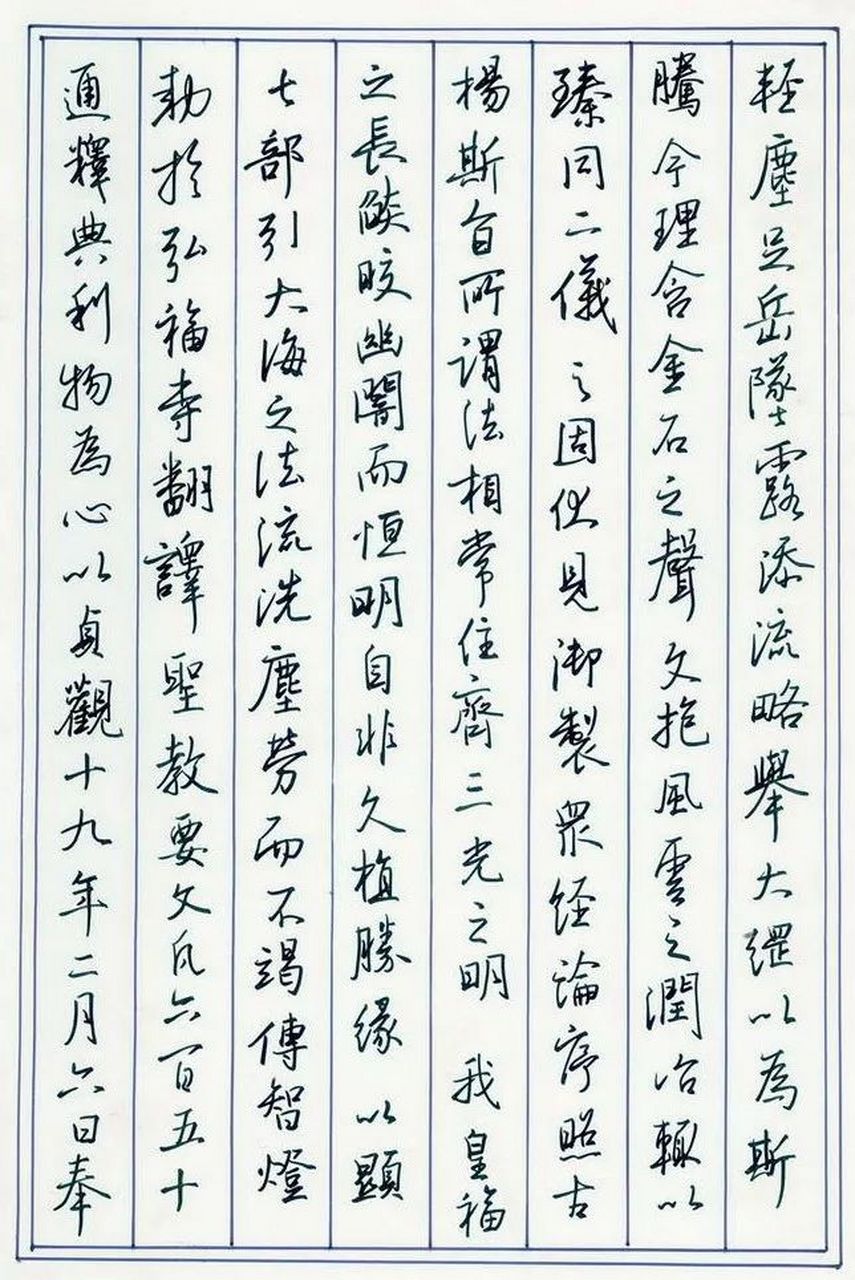 通釋典利物為心以貞觀十九年二月六日奉
勅於弘福寺翻譯聖教要文凡六百五十
七部引大海之法流洗塵勞而不竭傳智燈
之長燄皎幽闇而恒明自非久植勝緣 以顯
楊斯旨所謂法相常住齊三光之明 我皇福
臻同二儀之固伏見御製眾経論序照古
騰今理含金石之聲文抱風雲之潤治輒以
輕塵足岳墜露添流略舉大綱以為斯